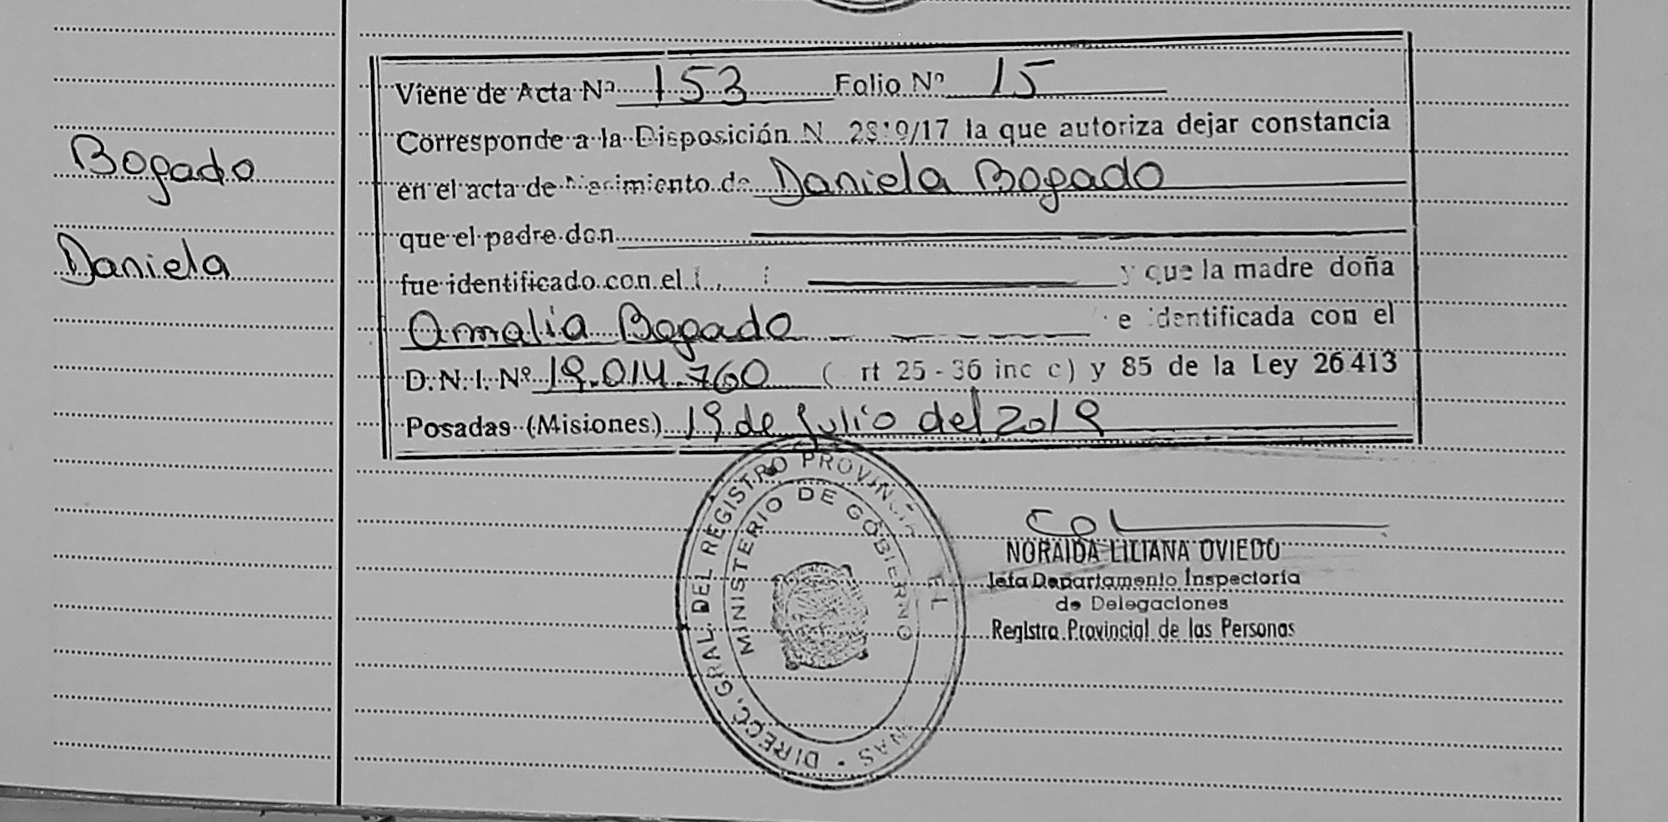 Bogado
Daniela
Viene de Acta Nº 153 Folio Nº 15
Corresponde a la Disposición N 2819/17 la que autoriza dejar constancia
en el acta de Nacimiento de Daniela Bogado
que el padre don
fue identificado con el y que la madre doña
Amalia Bogado e identificada con el
D.N.I. Nº 19.014.760 ( rt 25 - 36 inc c) y 85 de la Ley 26.413
Posadas (Misiones) 19 de Julio del 2019
DIRECC. GRAL. DEL REGISTRO PROVINCIAL
MINISTERIO DE GOBIERNO
NORAIDA LILIANA OVIEDO
Jefa Departamento Inspectoría
de Delegaciones
Registro Provincial de las Personas